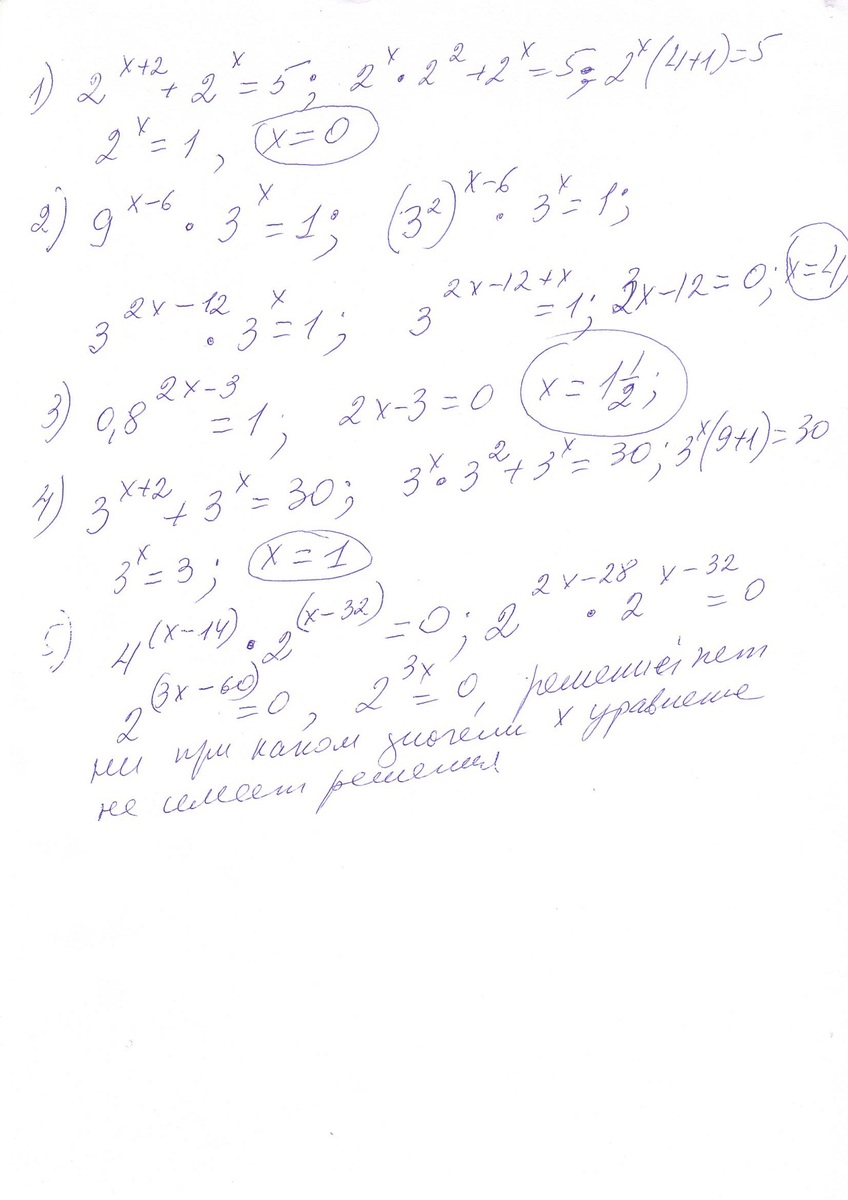 1) 2^(x+2) + 2^x = 5; 2^x · 2^2 + 2^x = 5; 2^x (4+1) = 5
2^x = 1, x = 0
2) 9^(x-6) · 3^x = 1; (3^2)^(x-6) · 3^x = 1;
3^(2x-12) · 3^x = 1; 3^(2x-12+x) = 1; 3x-12 = 0; x=4
3) 0,8^(2x-3) = 1; 2x-3 = 0 x = 1 1/2;
4) 3^(x+2) + 3^x = 30; 3^x · 3^2 + 3^x = 30; 3^x (9+1) = 30
3^x = 3; x = 1
5) 4^(x-14) · 2^(x-32) = 0; 2^(2x-28) · 2^(x-32) = 0
2^(3x-60) = 0, 2^(3x) = 0, решений нет
ни при каком x уравнение
не имеет решения